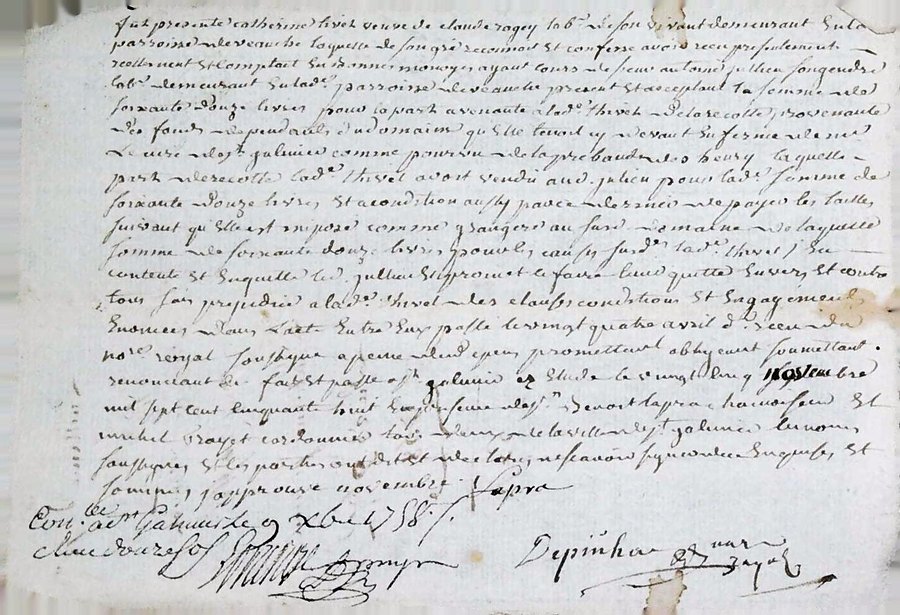 fut presente catherine thivet veuve de claude ragey lab.r de son vivant demeurant en la
parroisse de veauche laquelle de son gré reconnoit et confesse avoir receu presentement
reellement et comptant en bonnes monnoyes ayant cours de sieur antoine jullien son gendre
lab.r demeurant en lad.e parroisse de veauche present et acceptant la somme de
soixante douze livres pour la part avenante a lad.e thivet de la recolte provenante
des fonds dependants du domaine qu'elle tenoit cy devant en ferme de
le cure de s.t galmier comme pourvu de la prebande des henry laquelle
part de recolte lad.e thivet avoit vendu aud. julien pour lad.e somme de
soixante douze livres et a condition aussy par de de payer les tailles
suivant qu'elle est imposé comme grangere au susd. domaine de laquelle
somme de soixante douze livres pour les causes susd.es lad.e thivet
contente et en quitte led. jullien et promet le faire tenir quitte envers et contre
tous sans prejudice a lad.e thivet des clauses conditions et engagements
enoncés dans l'acte entre eux passé le vingt quatre avril d.r receu du
no.re royal soussigné a peine de depens promettant obligeant soumettant
renonçant &c fait et passé a s.t galmier en etude le vingt cinq novembre
mil sept cent cinquante huit en presence de s.r Benoit lapra chamoiseur et
michel trayet cordonnier tous deux de la ville de s.t galmier temoins
soussignés et les parties ont dit et declaré ne scavoir signer de ce enquises et
sommées japprouve novembre. Lapra
Con.lé a s.t Galmier le 9 Xbre 1758
douze sols
Depinhac